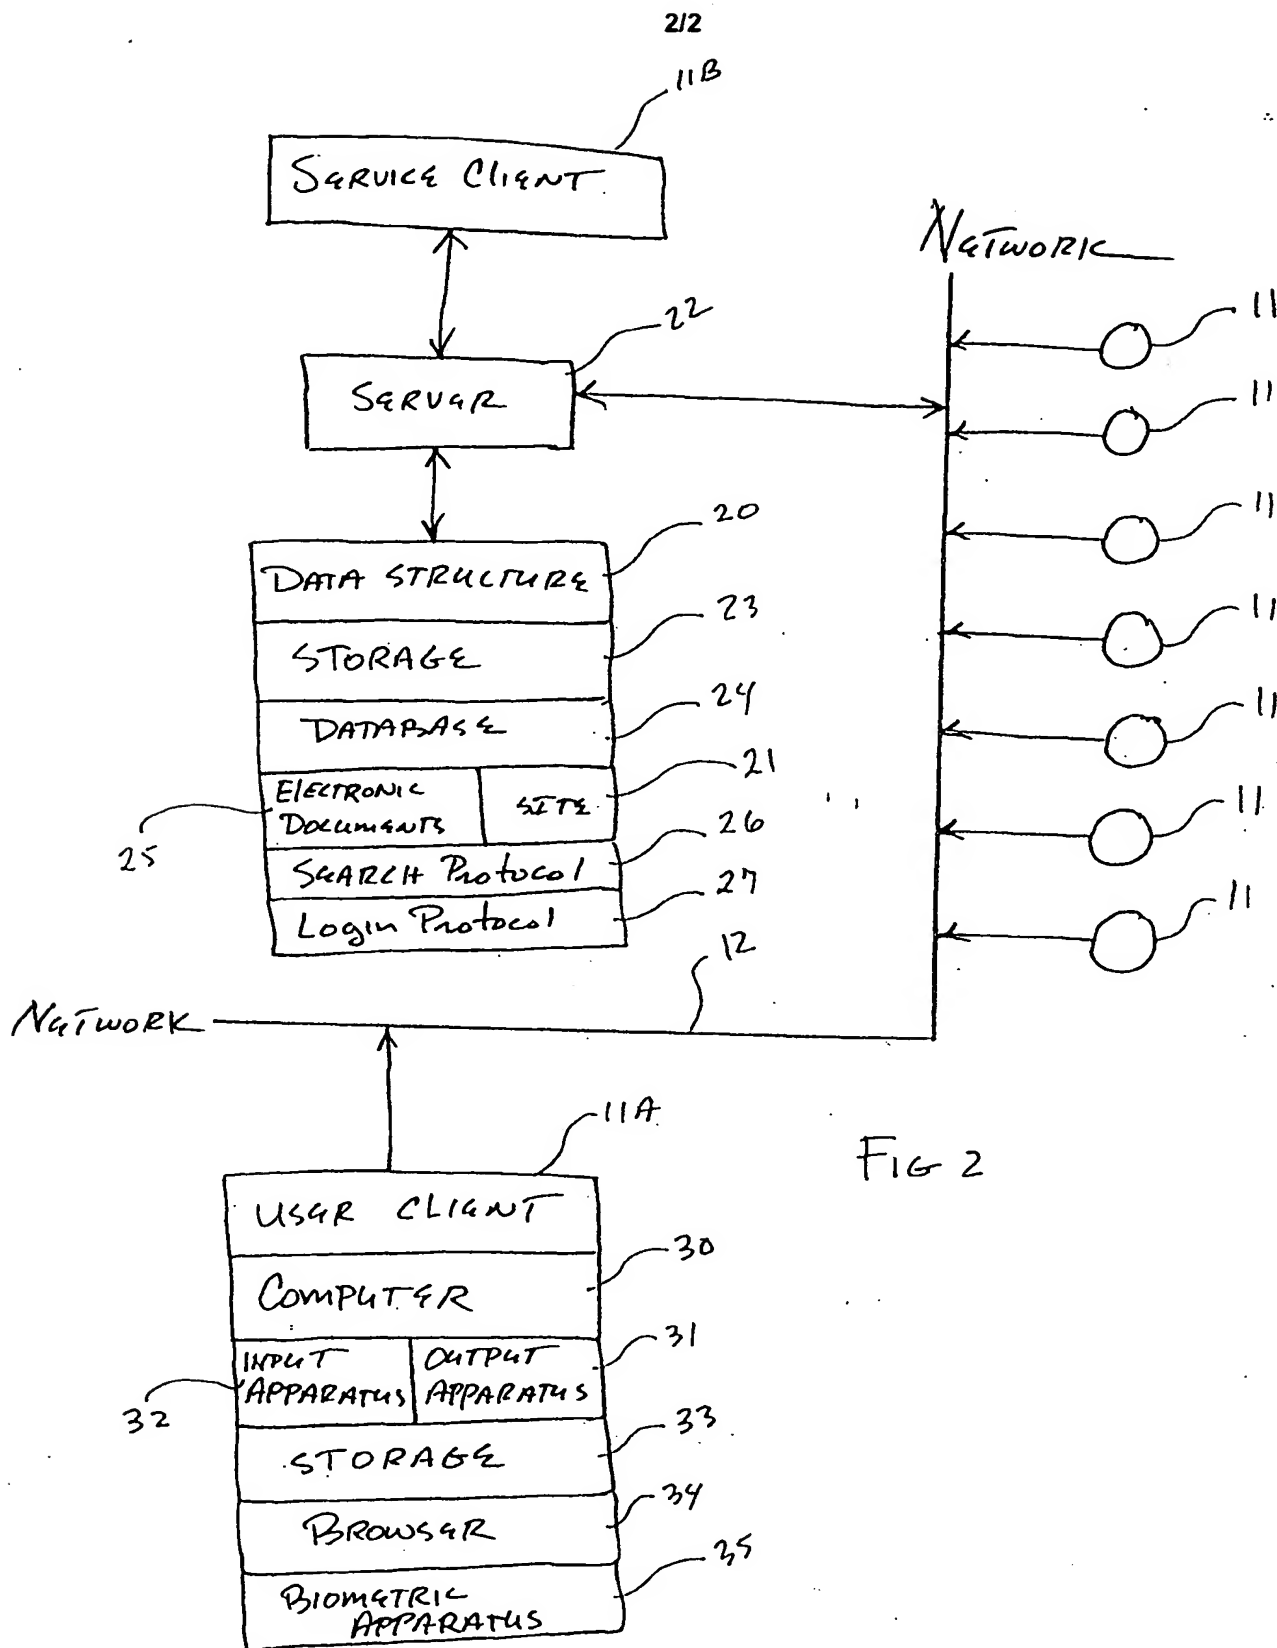 2/2
11B
SERVICE CLIENT
NETWORK
11
22
SERVER
11
11
20
DATA STRUCTURE
23
STORAGE
11
24
DATABASE
11
21
ELECTRONIC
DOCUMENTS
SITE
25
26
11
SEARCH Protocol
27
Login Protocol
11
12
NETWORK
11A
FIG 2
USER CLIENT
30
COMPUTER
31
INPUT
APPARATUS
OUTPUT
APPARATUS
32
33
STORAGE
34
BROWSER
35
BIOMETRIC
APPARATUS